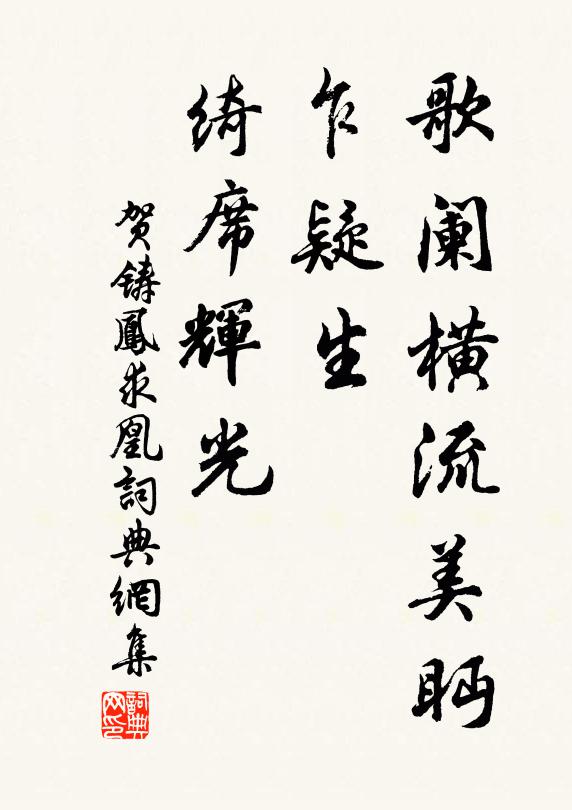 歌阑橫流美眄
乍疑生
綺席輝光
贺鑄鳳求凰詞典網集
詞典網印